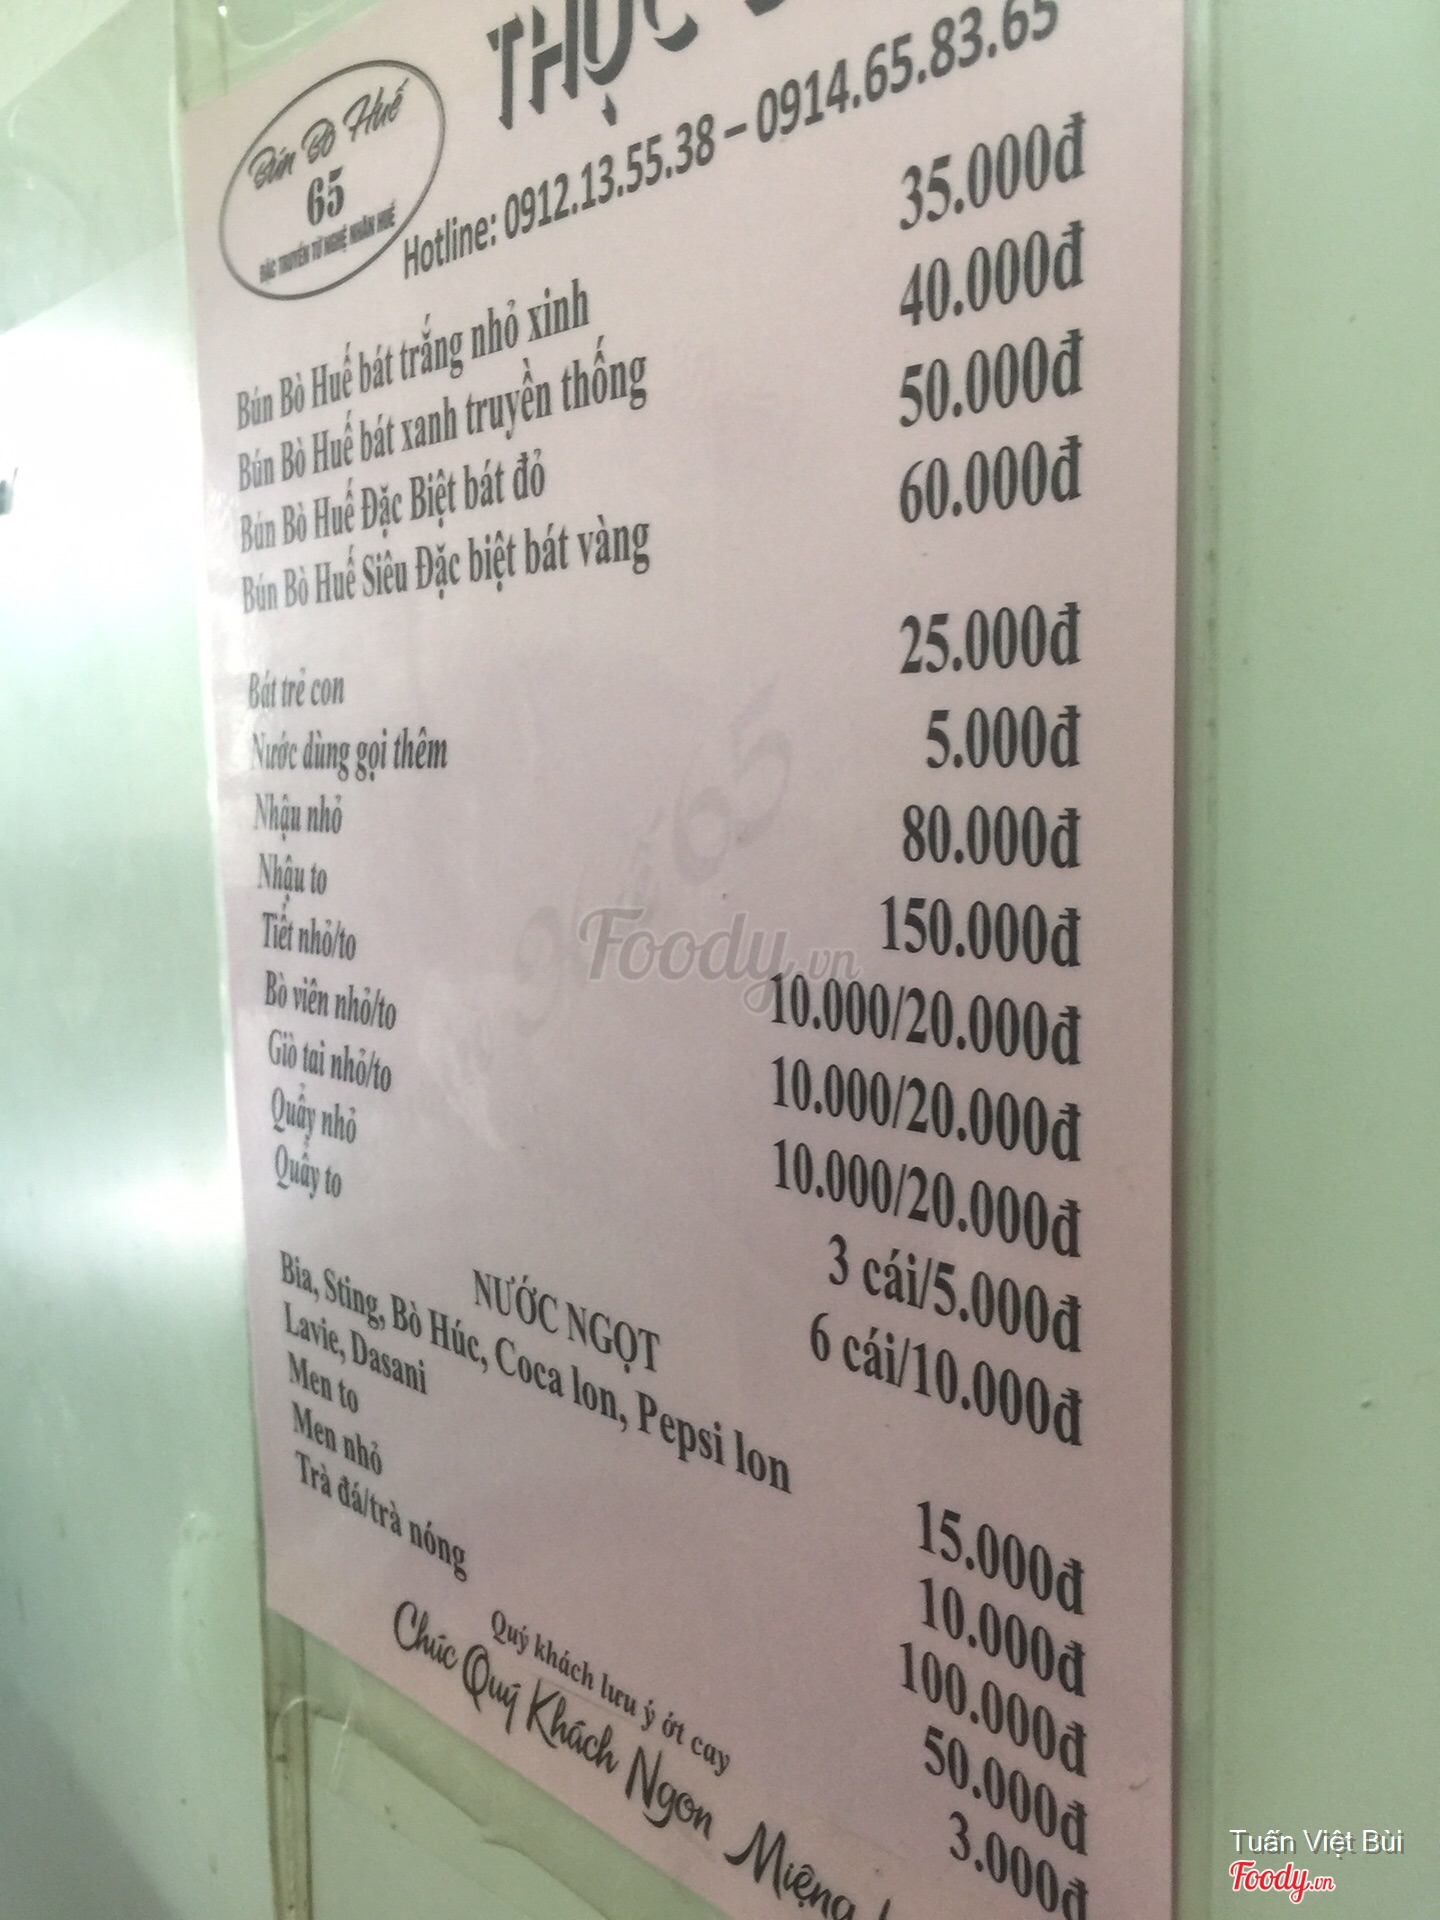 THỰC
Bún Bò Huế
65
ĐẶC TRUYỀN TỪ NGHỆ NHÂN HUẾ
Hotline: 0912.13.55.38 – 0914.65.83.65
Bún Bò Huế bát trắng nhỏ xinh 35.000đ
Bún Bò Huế bát xanh truyền thống 40.000đ
Bún Bò Huế Đặc Biệt bát đỏ 50.000đ
Bún Bò Huế Siêu Đặc biệt bát vàng 60.000đ
Bát trẻ con 25.000đ
Nước dùng gọi thêm 5.000đ
Nhậu nhỏ 80.000đ
Nhậu to 150.000đ
Tiết nhỏ/to 10.000/20.000đ
Bò viên nhỏ/to 10.000/20.000đ
Giò tai nhỏ/to 10.000/20.000đ
Quẩy nhỏ 3 cái/5.000đ
Quẩy to 6 cái/10.000đ
NƯỚC NGỌT
Bia, Sting, Bò Húc, Coca lon, Pepsi lon 15.000đ
Lavie, Dasani 10.000đ
Men to 100.000đ
Men nhỏ 50.000đ
Trà đá/trà nóng 3.000đ
Quý khách lưu ý ớt cay
Chúc Quý Khách Ngon Miệng
Huế 65
Foody.vn
Tuấn Việt Bùi
Foody.vn